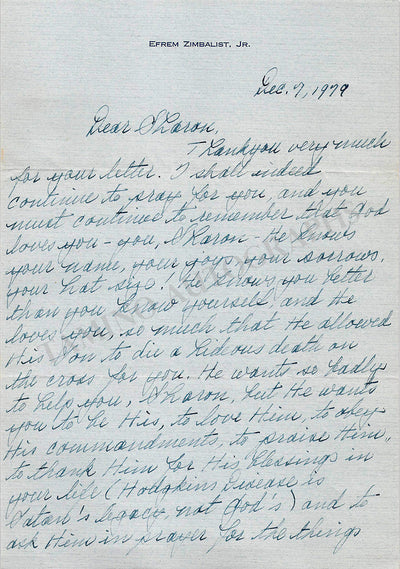 EFREM ZIMBALIST, JR.
Dec. 7, 1979
Dear Sharon,
Thankyou very much
for your letter. I shall indeed
continue to pray for you, and you
must continue to remember that God
loves you - you, Sharon - He knows
your name, your joys, your sorrows,
your hat size! He knows you better
than you know yourself and He
loves you, so much that He allowed
His Son to die a hideous death on
the cross for you. He wants so badly
to help you, Sharon, but He wants
you to be His, to love Him, to obey
His commandments, to praise Him,
to thank Him for His blessings in
your life (Hodgkins Disease is
Satan's legacy not God's) and to
ask Him in prayer for the things